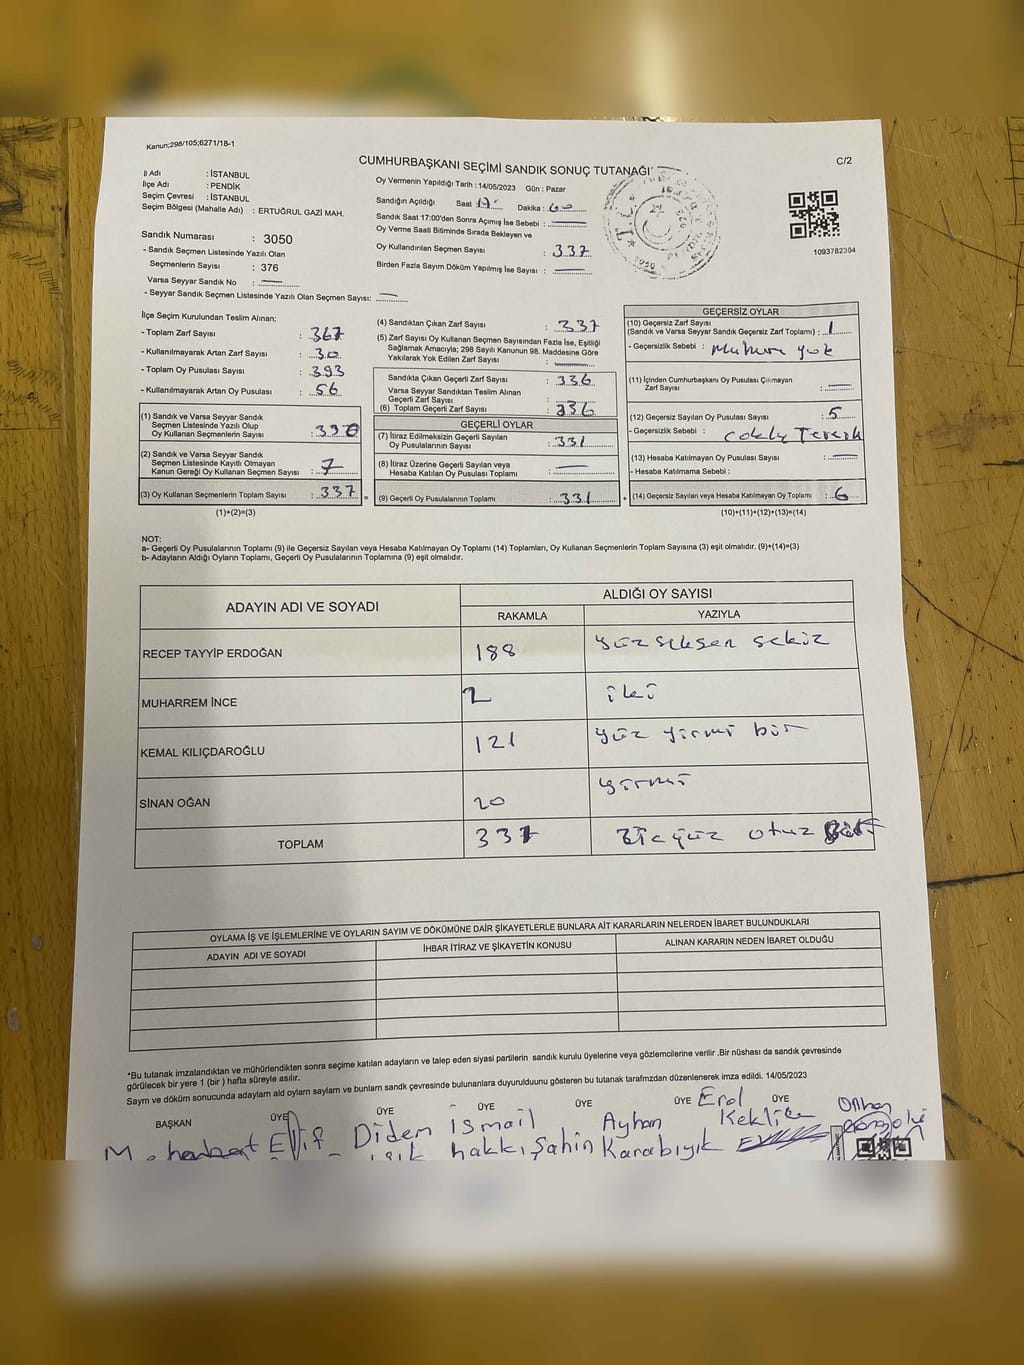 Kanun;298/105;6271/18-1
CUMHURBAŞKANI SEÇİMİ SANDIK SONUÇ TUTANAĞI
C/2
İl Adı : İSTANBUL
İlçe Adı : PENDİK
Seçim Çevresi : İSTANBUL
Seçim Bölgesi (Mahalle Adı) : ERTUĞRUL GAZİ MAH.
Sandık Numarası : 3050
- Sandık Seçmen Listesinde Yazılı Olan
Seçmenlerin Sayısı : 376
Varsa Seyyar Sandık No :
- Seyyar Sandık Seçmen Listesinde Yazılı Olan Seçmen Sayısı:
Oy Vermenin Yapıldığı Tarih : 14/05/2023 Gün : Pazar
Sandığın Açıldığı Saat 17 Dakika :
Sandık Saat 17:00'den Sonra Açımış İse Sebebi :
Oy Verme Saati Bitiminde Sırada Bekleyen ve
Oy Kullandırılan Seçmen Sayısı : 337
Birden Fazla Sayım Döküm Yapılmış İse Sayısı :
1093782364
İlçe Seçim Kurulundan Teslim Alınan;
- Toplam Zarf Sayısı : 367
- Kullanılmayarak Artan Zarf Sayısı : 30
- Toplam Oy Pusulası Sayısı : 393
- Kullanılmayarak Artan Oy Pusulası : 56
(1) Sandık ve Varsa Seyyar Sandık
Seçmen Listesinde Yazılı Olup
Oy Kullanan Seçmenlerin Sayısı : 330
(2) Sandık ve Varsa Seyyar Sandık
Seçmen Listesinde Kayıtlı Olmayan
Kanun Gereği Oy Kullanan Seçmen Sayısı : 7
(3) Oy Kullanan Seçmenlerin Toplam Sayısı : 337 =
(1)+(2)=(3)
(4) Sandıktan Çıkan Zarf Sayısı : 337
(5) Zarf Sayısı Oy Kullanan Seçmen Sayısından Fazla İse, Eşitliği
Sağlamak Amacıyla; 298 Sayılı Kanunun 98. Maddesine Göre
Yakılarak Yok Edilen Zarf Sayısı :
Sandıkta Çıkan Geçerli Zarf Sayısı : 336
Varsa Seyyar Sandıktan Teslim Alınan
Geçerli Zarf Sayısı :
(6) Toplam Geçerli Zarf Sayısı : 336
GEÇERLİ OYLAR
(7) İtiraz Edilmeksizin Geçerli Sayılan
Oy Pusulalarının Sayısı : 331
(8) İtiraz Üzerine Geçerli Sayılan veya
Hesaba Katılan Oy Pusulası Sayısı :
(9) Geçerli Oy Pusulalarının Toplamı : 331 +
GEÇERSİZ OYLAR
(10) Geçersiz Zarf Sayısı
(Sandık ve Varsa Seyyar Sandık Geçersiz Zarf Toplamı) : 1
- Geçersizlik Sebebi : Mühürü yok
(11) İçinden Cumhurbaşkanı Oy Pusulası Çıkmayan
Zarf Sayısı :
(12) Geçersiz Sayılan Oy Pusulası Sayısı : 5
- Geçersizlik Sebebi :
(13) Hesaba Katılmayan Oy Pusulası Sayısı :
- Hesaba Katılmama Sebebi :
(14) Geçersiz Sayılan veya Hesaba Katılmayan Oy Toplamı : 6
(10)+(11)+(12)+(13)=(14)
NOT:
a- Geçerli Oy Pusulalarının Toplamı (9) ile Geçersiz Sayılan veya Hesaba Katılmayan Oy Toplamı (14) Toplamları, Oy Kullanan Seçmenlerin Toplam Sayısına (3) eşit olmalıdır. (9)+(14)=(3)
b- Adayların Aldığı Oyların Toplamı, Geçerli Oy Pusulalarının Toplamına (9) eşit olmalıdır.
ADAYIN ADI VE SOYADI
ALDIĞI OY SAYISI
RAKAMLA YAZIYLA
RECEP TAYYİP ERDOĞAN 188 yüz seksen sekiz
MUHARREM İNCE 2 iki
KEMAL KILIÇDAROĞLU 121 yüz yirmi bir
SİNAN OĞAN 20 yirmi
TOPLAM 331 üçyüz otuz bir
OYLAMA İŞ VE İŞLEMLERİNE VE OYLARIN SAYIM VE DÖKÜMÜNE DAİR ŞİKAYETLERLE BUNLARA AİT KARARLARIN NELERDEN İBARET BULUNDUKLARI
ADAYIN ADI VE SOYADI İHBAR İTİRAZ VE ŞİKAYETİN KONUSU ALINAN KARARIN NEDEN İBARET OLDUĞU
*Bu tutanak imzalandıktan ve mühürlendikten sonra seçime katılan adayların ve talep eden siyasi partilerin sandık kurulu üyelerine veya gözlemcilerine verilir .Bir nüshası da sandık çevresinde
görülecek bir yere 1 (bir ) hafta süreyle asılır.
Sayım ve döküm sonucunda adayların aldı oyların sayların ve bunların sandk çevresinde bulunanlara duyurulduunu gösteren bu tutanak tarafmzdan düzenlenerek imza edildi. 14/05/2023
BAŞKAN ÜYE ÜYE ÜYE ÜYE ÜYE ÜYE
Elif
Didem Işık
İsmail hakkı Şahin
Ayhan Karabıyık
Erol Keklik
Orhan